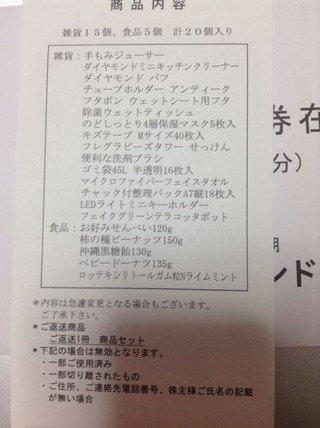 商品内容
雑貨15個、食品5個 計20個入り
雑貨:手もみジューサー
ダイヤモンドミニキッチンクリーナー
ダイヤモンド パフ
チューブホルダー アンティーク
フタポン ウェットシート用フタ
除菌ウェットティッシュ
のどしっとり4層保湿マスク5枚入
キズテープ Mサイズ40枚入
フレグラビーズタワー せっけん
便利な洗剤ブラシ
ゴミ袋45L 半透明16枚入
マイクロファイバーフェイスタオル
チャック付整理パックA7縦18枚入
LEDライトミニキーホルダー
フェイクグリーンテラコッタポット
食品:お好みせんべい120g
柿の種ピーナッツ150g
沖縄黒糖飴130g
ベビードーナツ135g
ロッテキシリトールガム粒Nライムミント
*内容は急遽変更となる場合もございます。
ご了承下さい。
*ご返送商品
ご返送1冊 商品セット
*下記の場合は無効となります。
・一部ご使用済み
・一部切り離されたもの
・ご住所、ご連絡先電話番号、株主様ご氏名の記載
が無い場合
券在
分)
期
ンド